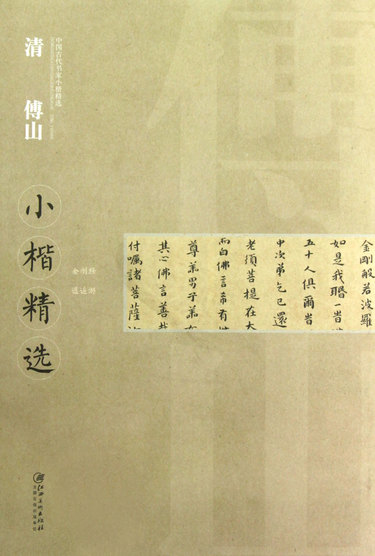 中国古代书家小楷精选
清 傅山
小楷精选
金刚经
逍遥游
金剛般若波羅
如是我聞一旹
五十人俱爾旹
中次第乞已還
老須菩提在大
而白佛言希有
尊善男子善
其心佛言善
付囑諸菩薩
江西美术出版社